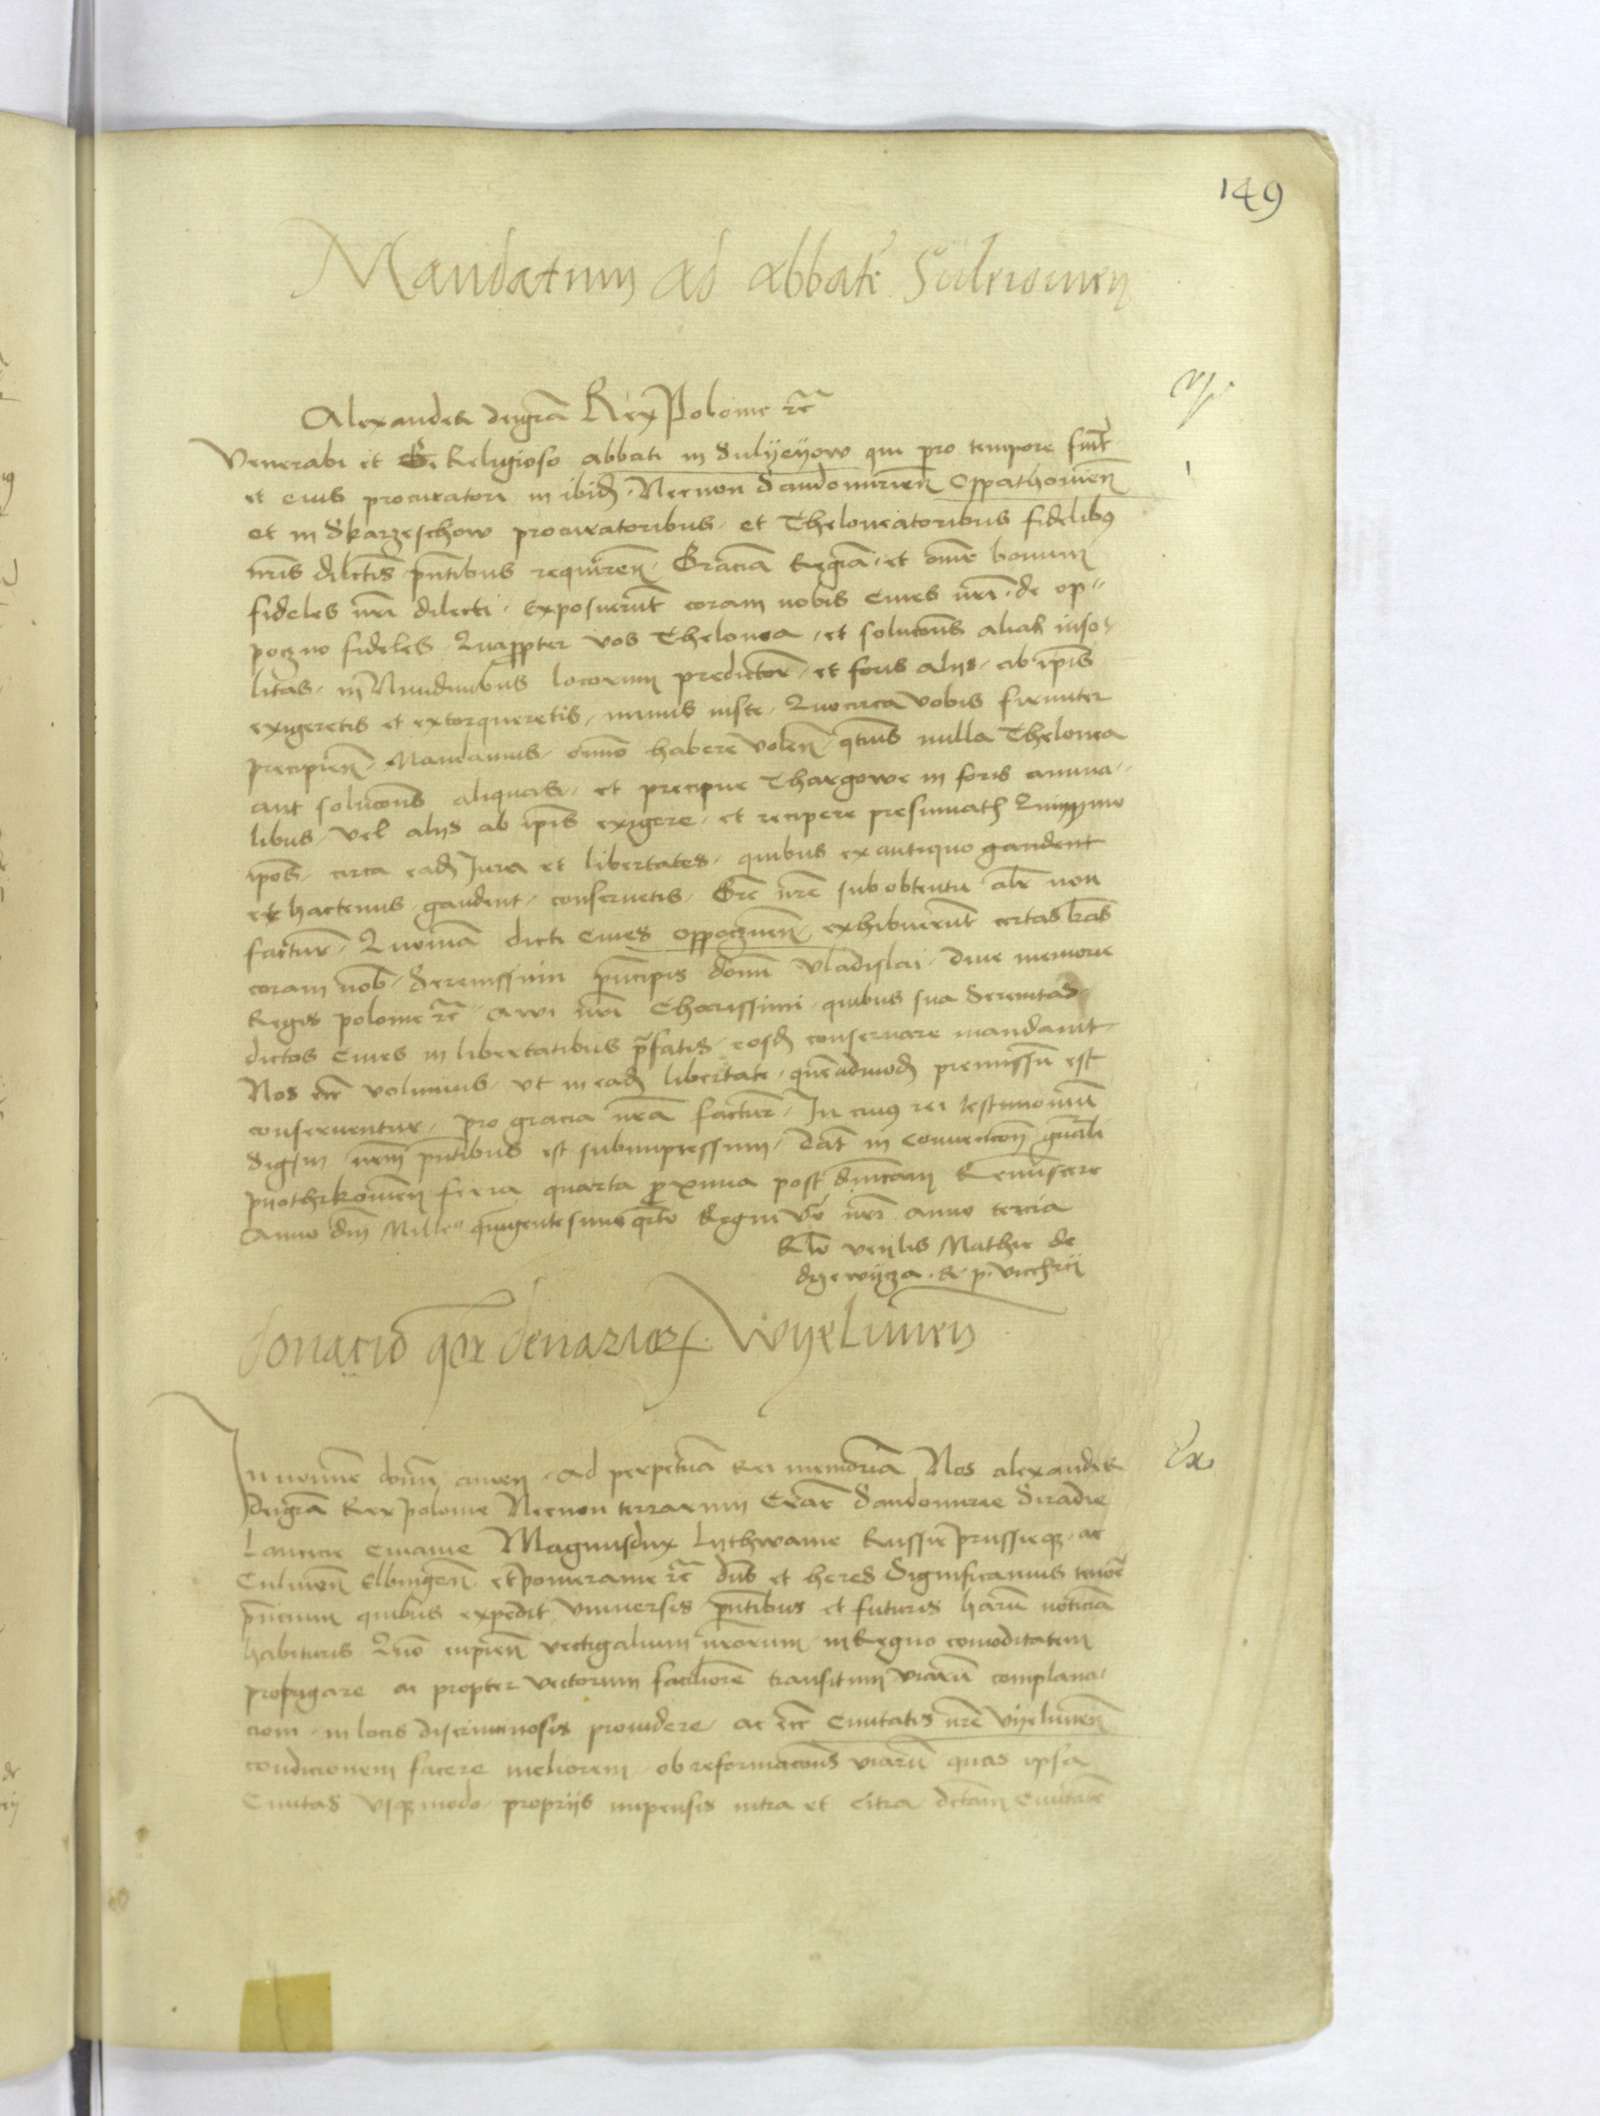 149
Mandatum ad abbatē Suleiowien̄
Alexander deigrā Rex Polonie rc̄
Venerabi et Religioso abbati in Sulyeyow qui pro tempore fuīt
et eius procuratori in ibid̄. Necnon Sandomirien̄ Oppathouien̄
et in Skarzeschow procuratoribus et Theloneatoribus fidelibꝯ
nr̄is dilectis pn̄tibus requiren̄. Graciā Regiā et om̄e bonum
fideles nr̄i dilecti. Exposuerūt coram nobis Ciues nr̄i de op-
poczno fideles Quapp̄ter vos Thelonea et solucōes alias inso-
litas in Nundinibus locorum predictoꝝ et foris alijs ab ip̄is
exigeretis et extorqueretis minus iuste. Quocirca vobis firmiter
precipien̄. Mandamus om̄io habere volen̄ q̄tius nulla Thelonea
aut solucōes aliquas et precipue Thargowe in foris annua-
libus vel alijs ab ip̄is exigere et recipere presumatis Quiymmo
ip̄os circa ead̄ Jura et libertates quibus ex antiquo gaudent
et hactenus gaudent conseruetis. Grē nr̄e sub obtentu alr̄ non
factur̄. Quoniā dicti Ciues oppocznen̄ exhibuerūt certas lr̄as
coram nob̄ Serenissimi prīcipis domī vladislai diue memorie
Regis polonie rc̄ Awi nr̄i Charissimi quibus sua Serenitas
dictos Ciues in libertatibus p̄fatis eosd̄ conseruare mandauit
Nos ec̄ volumus vt in ead̄ libertate quēadmod̄ premissū est
conseruentur pro gracia nr̄a factur̄. In cuiꝯ rei testimoniū
Sigm nr̄m pn̄tibus est subimpressum. Dat̄ in Conuencōe gn̄ali
pyothrkowien̄ feria quarta proxima post dn̄icam Reminiscere
Anno dn̄i Mille° quingentesimo q̄rto Regni vo nr̄i anno tercia
Rlō ven̄lis Mathie de
drzewycza R. p. vicecn̄ı̄j
donacio qͣr denarioꝝ Wyelunien̄
In nomine domī amen. Ad perpetuā Rei memoriā Nos alexander
deigrā Rex polonie Necnon terrarum Crac̄ Sandomirie Siradie
Lancicie Cuiauie Magnusdux Lythwanie Russie prussieqꝫ ac
Culmen̄ Elbingen̄ et pomeranie rc̄ dn̄s et heres Significamus tenoē
pn̄cium quibus expedit vniuersis pn̄tibus et futuris harū noticiā
habituris Quō cupien̄ vectigalium nr̄orum in Regno comoditatem
propagare ac propter vectorum faciliorē transitum viarū complana-
ciom in locis discriminosis prouidere ac ec̄ Ciuitatis nr̄e vyelunien̄
condicionem facere meliorem ob reformacōes viarū quas ipsa
Ciuitas vsqꝫ modo proprijs impensis intra et citra dictam Ciuitatē
Ex